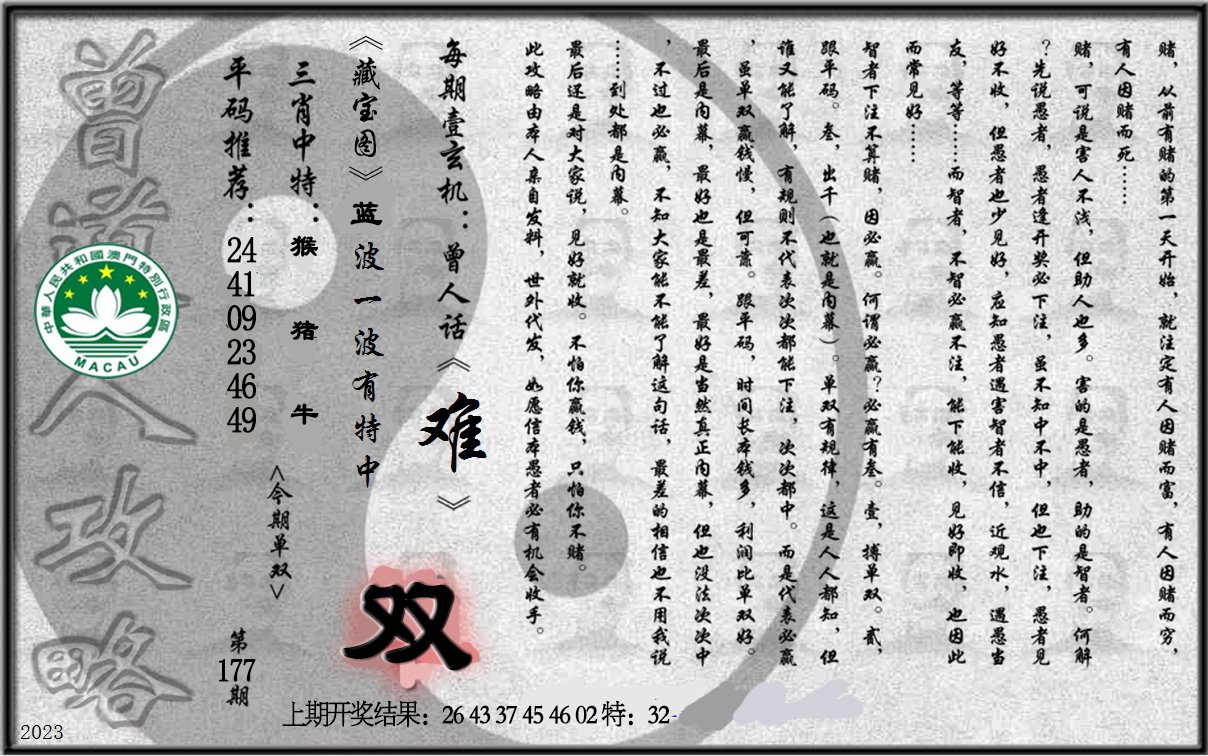 赌，从前有赌的第一天开始，就注定有人因赌而富，有人因赌而穷，
有人因赌而死……
赌，可说是害人不浅，但助人也多。害的是愚者，助的是智者。何解
？先说愚者，愚者逢开奖必下注，虽不知中不中，但也下注，愚者见
好不收，但愚者也少见好，应知愚者遇害智者不信，近观水，遇愚当
友，等等……而智者，不智必赢不注，能下能收，见好即收，也因此
而常见好……
智者下注不算赌，因必赢。何谓必赢？必赢有叁。壹，搏单双。贰，
跟平码。叁，出千（也就是内幕）。单双有规律，这是人人都知，但
谁又能了解，有规则不代表次次都能下注，次次都中。而是代表必赢
，虽单双赢钱慢，但可靠。跟平码，时间长本钱多，利润比单双好。
最后是内幕，最好也是最差，最好是当然真正内幕，但也没法次次中
，不过也必赢，不知大家能不能了解这句话，最差的相信也不用我说
……到处都是内幕。
最后还是对大家说，见好就收。不怕你赢钱，只怕你不赌。
此攻略由本人亲自发料，世外代发，如愿信本愚者必有机会收手。
每期壹玄机：曾人话《难》
《藏宝图》蓝波一波有特中
双
三肖中特：猴 猪 牛
<今期单双>
平码推荐：24 41 09 23 46 49
第177期
曾道人攻略
中華人民共和國澳門特別行政區
MACAU
上期开奖结果：26 43 37 45 46 02 特：32-
2023